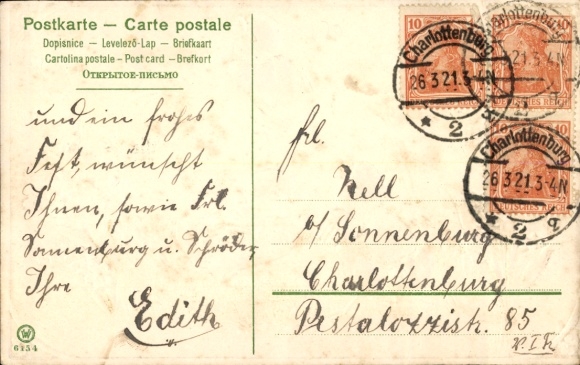 Postkarte – Carte postale
Dopisnice – Levelező-Lap – Briefkaart
Cartolina postale – Post card – Brefkort
Открытое-письмо
und ein frohes
Fest, wünscht
Ihnen, sowie Frl.
Sonnenburg u. Schröder,
Ihre
Edith
W
6454
10
10
10
DEUTSCHES REICH
Charlottenburg
26 3 21. 3-4N
* 2 q
Charlottenburg
21. 3-4N
2 q
Charlottenburg
26 3 21. 3-4N
* 2 q
Frl.
Nell
b/ Sonnenburg
Charlottenburg
Pestalozzistr. 85